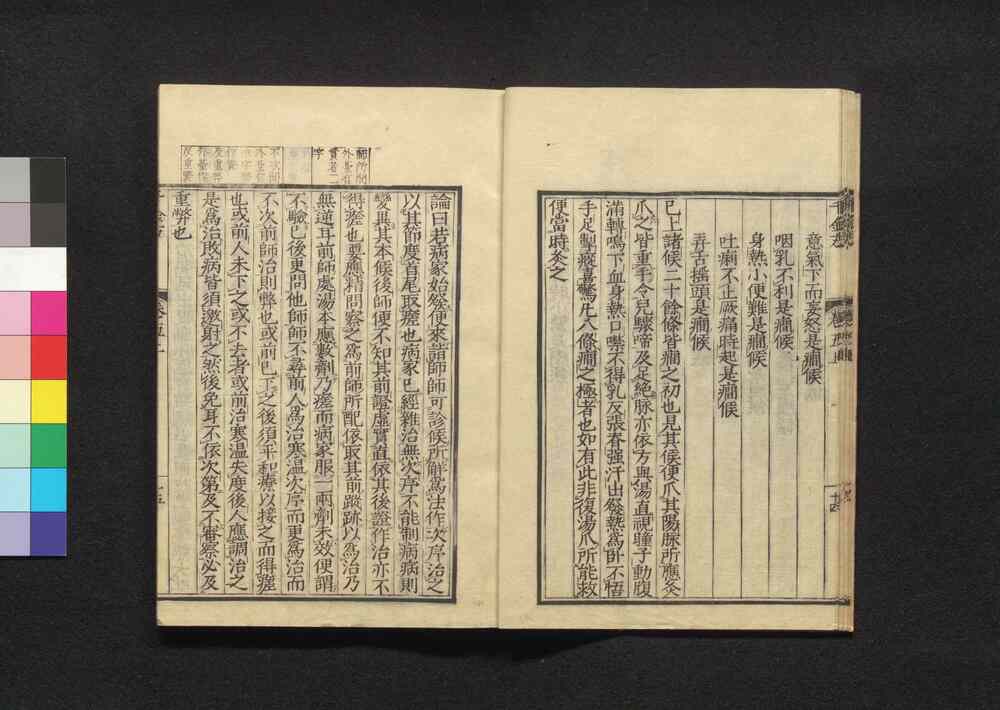 意氣下而妄怒是癎候
咽乳不利是癎候
身熱小便難是癎候
吐痢不止厥痛時起是癎候
弄舌搖頭是癎候
已上諸候二十餘條皆癎之初也見其候便爪其陽脉所應灸
爪之皆重手令兒驟啼及足絕脉亦依方與湯直視瞳子動腹
滿轉鳴下血身熱口噤不得乳反張脊強汗出發熱爲卧不悟
手足掣瘲喜驚凡八條癎之極者也如有此非復湯爪所能救
便當時灸之
論曰若病家始發便來詣師師可診候所解爲法作次序治之
以其節度首尾取瘥也病家已經雜治無次序不能制病病則
變異其本候後師便不知其前證虛實直依其後證作治亦不
得瘥也要應精問察之爲前師所配依取其前蹤跡以爲治乃
無逆耳前師處湯本應數劑乃瘥而病家服一兩劑未效便謂
不驗已後更問他師師不尋前人爲治寒溫次序而更爲治而
不次前師治則弊也或前已下之後須平和療以接之而得瘥
也或前人未下之或不去者或前治寒溫失度後人應調治之
是爲治敗病皆須邀射之然後免耳不依次第及不審察必及
重弊也